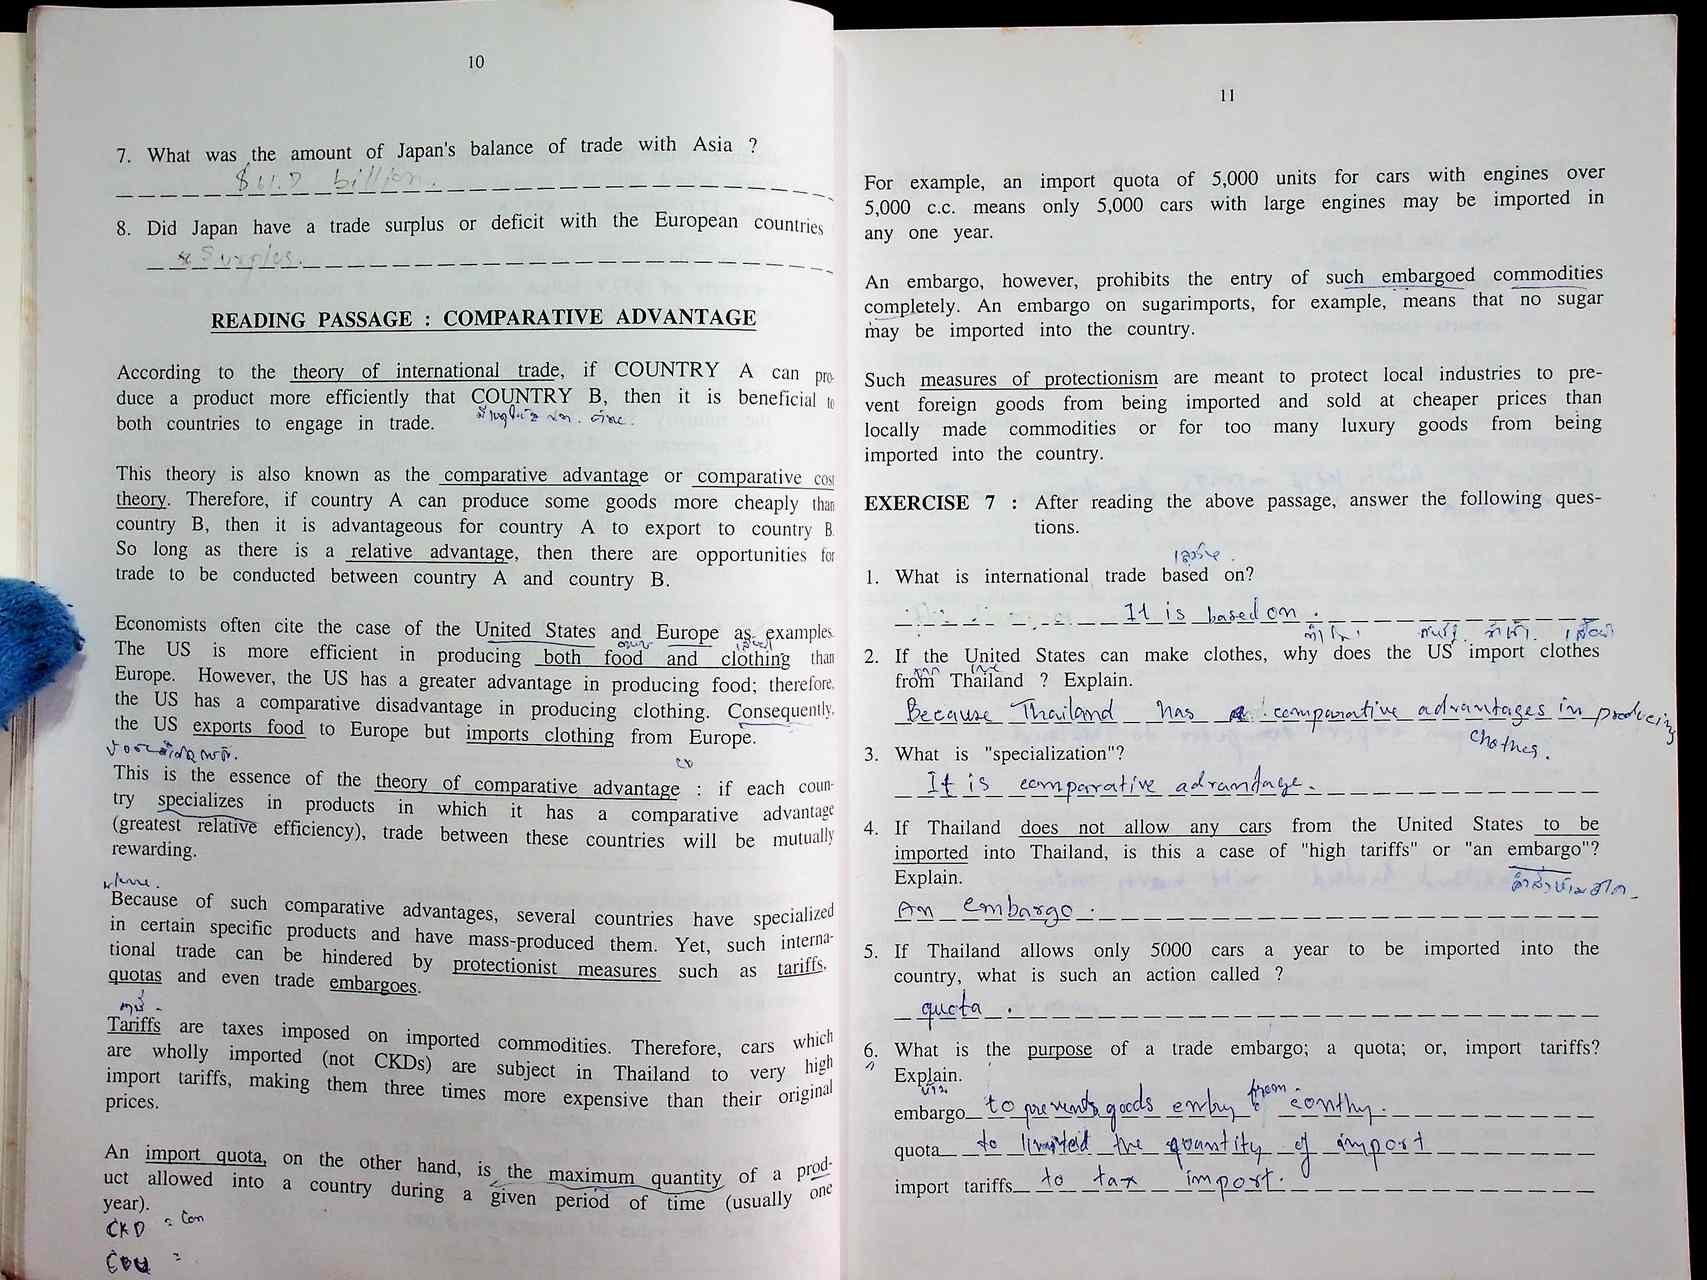 10
7. What was the amount of Japan's balance of trade with Asia ?
billion.
8. Did Japan have a trade surplus or deficit with the European countries
Surplus.
READING PASSAGE : COMPARATIVE ADVANTAGE
According to the theory of international trade, if COUNTRY A can pro-
duce a product more efficiently that COUNTRY B, then it is beneficial to
both countries to engage in trade.
This theory is also known as the comparative advantage or comparative cost
theory. Therefore, if country A can produce some goods more cheaply than
country B, then it is advantageous for country A to export to country B.
So long as there is a relative advantage, then there are opportunities for
trade to be conducted between country A and country B.
Economists often cite the case of the United States and Europe as examples.
The US is more efficient in producing both food and clothing than
Europe. However, the US has a greater advantage in producing food; therefore,
the US has a comparative disadvantage in producing clothing. Consequently,
the US exports food to Europe but imports clothing from Europe.
This is the essence of the theory of comparative advantage : if each coun-
try specializes in products in which it has a comparative advantage
(greatest relative efficiency), trade between these countries will be mutually
rewarding.
Because of such comparative advantages, several countries have specialized
in certain specific products and have mass-produced them. Yet, such interna-
tional trade can be hindered by protectionist measures such as tariffs,
quotas and even trade embargoes.
Tariffs are taxes imposed on imported commodities. Therefore, cars which
are wholly imported (not CKDs) are subject in Thailand to very high
import tariffs, making them three times more expensive than their original
prices.
An import quota, on the other hand, is the maximum quantity of a prod-
uct allowed into a country during a given period of time (usually one
year).
CKD =
11
For example, an import quota of 5,000 units for cars with engines over
5,000 c.c. means only 5,000 cars with large engines may be imported in
any one year.
An embargo, however, prohibits the entry of such embargoed commodities
completely. An embargo on sugarimports, for example, means that no sugar
may be imported into the country.
Such measures of protectionism are meant to protect local industries to pre-
vent foreign goods from being imported and sold at cheaper prices than
locally made commodities or for too many luxury goods from being
imported into the country.
EXERCISE 7 : After reading the above passage, answer the following ques-
tions.
1. What is international trade based on?
It is based on .
2. If the United States can make clothes, why does the US import clothes
from Thailand ? Explain.
Because Thailand has comparative advantages in producing
clothes.
3. What is "specialization"?
It is comparative advantage.
4. If Thailand does not allow any cars from the United States to be
imported into Thailand, is this a case of "high tariffs" or "an embargo"?
Explain.
An embargo.
5. If Thailand allows only 5000 cars a year to be imported into the
country, what is such an action called ?
quota .
6. What is the purpose of a trade embargo; a quota; or, import tariffs?
Explain.
embargo to prevents goods from
quota to limited the quantity of import
import tariffs to tax import.